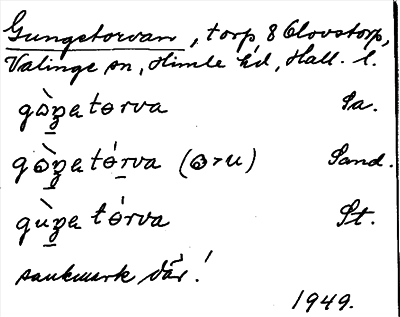 Gungetorvan, torp 8 Olovstorp,
Valinge sn, Himle hd, Hall. l.
gɷ̀ŋa tɵrva Sa.
gɷ̀ŋa tɵ́rva (ɷ>u) Sand.
gùŋa tɵ́rva St.
sankmark där!
1949.